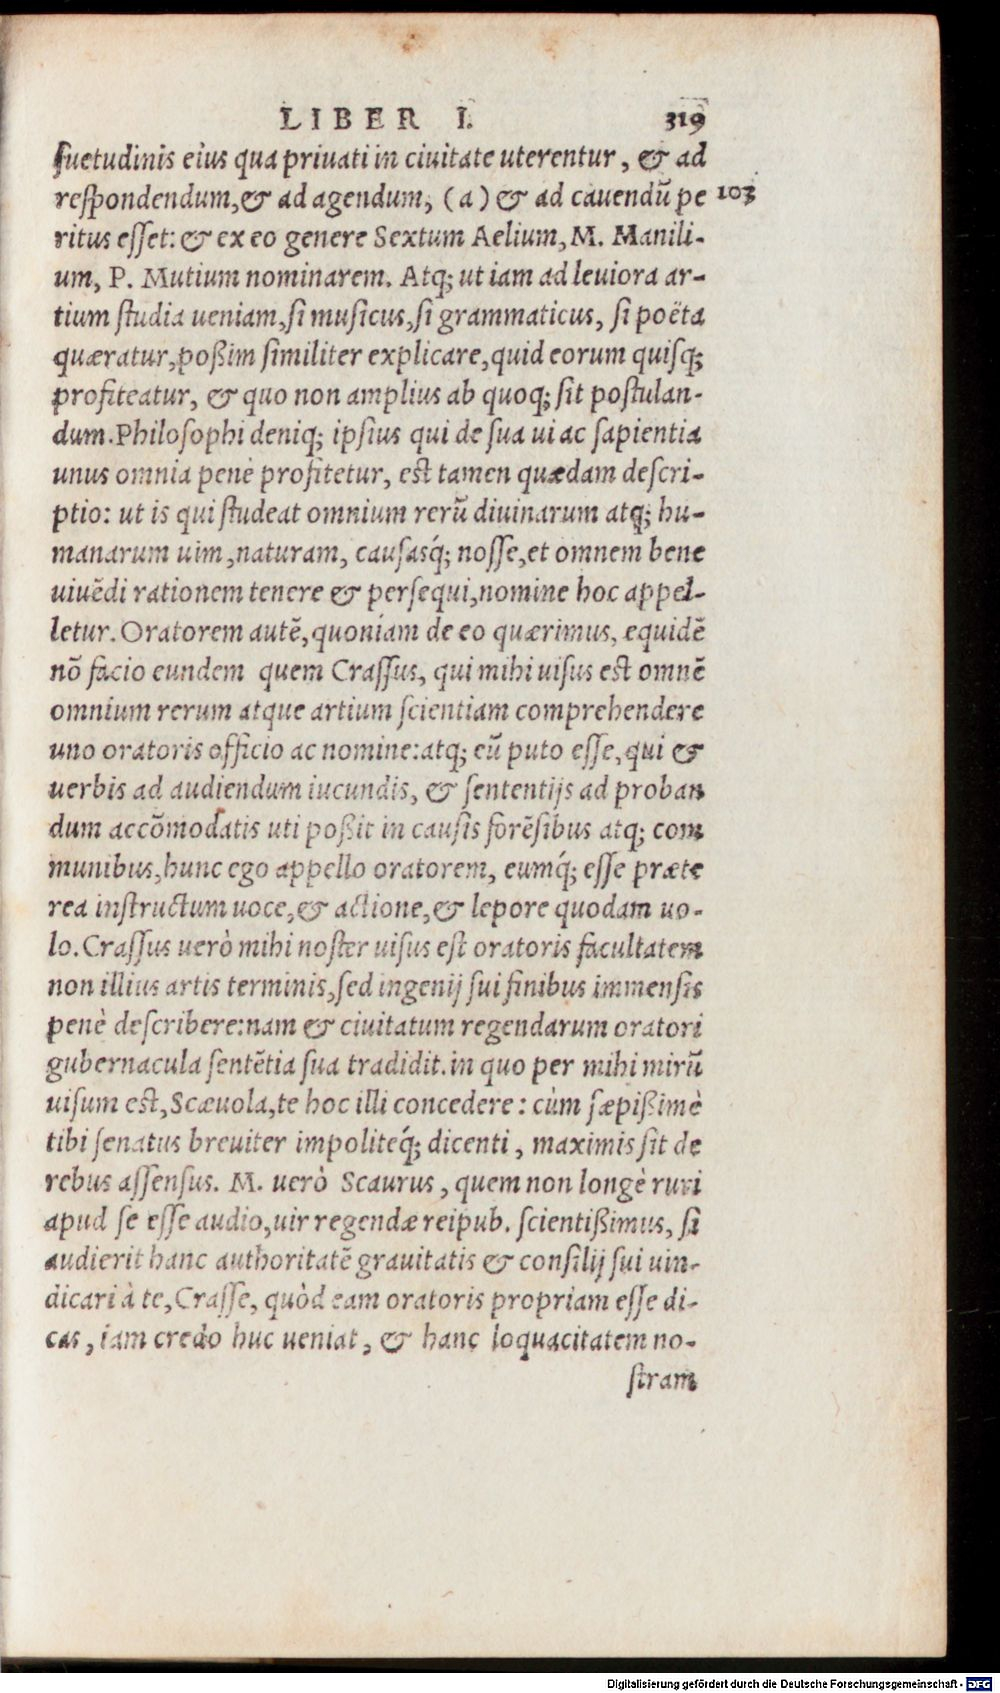 LIBER I. 319
suetudinis eius qua priuati in ciuitate uterentur, & ad
respondendum, & ad agendum, (a) & ad cauendũ pe 103
ritus esset: & ex eo genere Sextum Aelium, M. Manili-
um, P. Mutium nominarem. Atq; ut iam ad leuiora ar-
tium studia ueniam, si musicus, si grammaticus, si poëta
quæratur, poßim similiter explicare, quid eorum quisq;
profiteatur, & quo non amplius ab quoq; sit postulan-
dum. Philosophi deniq; ipsius qui de sua ui ac sapientia
unus omnia penè profitetur, est tamen quædam descri-
ptio: ut is qui studeat omnium rerũ diuinarum atq; hu-
manarum uim, naturam, causasq́; nosse, et omnem bene
uiuẽdi rationem tenere & persequi, nomine hoc appel-
letur. Oratorem autẽ, quoniam de eo quærimus, equidẽ
nõ facio eundem quem Crassus, qui mihi uisus est omnẽ
omnium rerum atque artium scientiam comprehendere
uno oratoris officio ac nomine: atq; eũ puto esse, qui &
uerbis ad audiendum iucundis, & sententijs ad proban
dum accõmodatis uti poßit in causis forẽsibus atq; com
munibus, hunc ego appello oratorem, eumq́; esse præte
rea instructum uoce, & actione, & lepore quodam uo-
lo. Crassus uerò mihi noster uisus est oratoris facultatem
non illius artis terminis, sed ingenij sui finibus immensis
penè describere: nam & ciuitatum regendarum oratori
gubernacula sentẽtia sua tradidit. in quo per mihi mirũ
uisum est, Scæuola, te hoc illi concedere: cùm sæpißimè
tibi senatus breuiter impoliteq́; dicenti, maximis sit de
rebus assensus. M. uerò Scaurus, quem non longè ruri
apud se esse audio, uir regendæ reipub. scientißimus, si
audierit hanc authoritatẽ grauitatis & consilij sui uin-
dicari à te, Crasse, quòd eam oratoris propriam esse di-
cas, iam credo huc ueniat, & hanc loquacitatem no-
stram
Digitalisierung gefördert durch die Deutsche Forschungsgemeinschaft - DFG